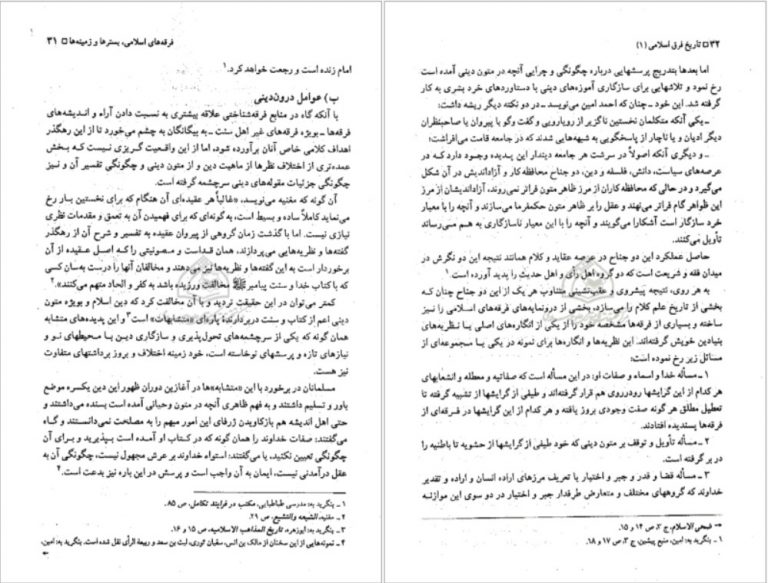 فرقه‌های اسلامی، بسترها و زمینه‌ها □ ۳۱
امام زنده است و رجعت خواهد کرد.۱
ب) عوامل درون‌دینی
با آنکه گاه در منابع فرقه‌شناختی علاقه بیشتری به نسبت دادن آراء و اندیشه‌های
فرقه‌ها ـ بویژه فرقه‌های غیر اهل سنت ـ به بیگانگان به چشم می‌خورد تا از این رهگذر
اهداف کلامی خاص آنان برآورده شود، اما از این واقعیت گریزی نیست کـه بـخش
عمده‌تری از اختلاف نظرها از ماهیت دین و از متون دینی و چگونگی تفسیر آن و نـیز
چگونگی جزئیات مقوله‌های دینی سرچشمه گرفته است.
آن گونه که مغنیه می‌نویسد، «غالباً هر عقیده‌ای آن هنگام که برای نخستین بـار رخ
می‌نماید کاملاً ساده و بسیط است، به‌گونه‌ای که برای فهمیدن آن به تعمق و مقدمات نظری
نیازی نیست. اما با گذشت زمان گروهی از پیروان عقیده به تفسیر و شرح آن از رهگذر
گفته‌ها و نظریه‌هایی می‌پردازند، همان قـداست و مـصونیتی را کـه اصـل عـقیده از آن
برخوردار است به این گفته‌ها و نظریه‌ها نیز می‌دهند و مخالفان آنها را درست به‌سان کسی
که با کتاب خدا و سنت پیامبر ﷺ مخالفت ورزیده باشد به کفر و الحاد متهم می‌کنند».۲
کمتر می‌توان در این حقیقت تردید و با آن مخالفت کرد که دین اسلام و بویژه متون
دینی اعم از کتاب و سنت دربردارنده پاره‌ای «متشابهات» است۳ و این پدیده‌های متشابه
همان گونه که یکی از سرچشمه‌های تحول‌پذیری و سازگاری دیـن بـا محیطهای نـو و
نیازهای تازه و پرسشهای نوخاسته است، خود زمینه اختلاف و بروز برداشتهای متفاوت
نیز هست.
مسلمانان در برخورد با این «متشابه»ها در آغازین دوران ظهور این دین یکسره موضع
باور و تسلیم داشتند و به فهم ظاهری آنچه در متون وحیانی آمده است بسنده می‌داشتند و
حتی اهل اندیشه هم بازکاویدن ژرفای این امور مبهم را به مصلحت نمی‌دانستند و گـاه
می‌گفتند: صفات خداوند را همان گونه که در کتـاب او آمـده اسـت بـپذیرید و بـرای آن
چگونگی تعیین نکنید، یا می‌گفتند: استواء خداوند بر عرش مجهول نیست، چگونگی آن به
عقل درآمدنی نیست، ایمان به آن واجب است و پرسش در این باره نیز بدعت است.۴
۱ ـ بنگرید به: مدرسی طباطبایی، مکتب در فرایند تکامل، ص ۸۵.
۲ ـ مغنیه، الشیعه والتشیع، ص ۲۱.
۳ ـ بنگرید به: ابوزهره، تاریخ المذاهب الاسلامیه، ص ۱۵ و ۱۶.
۴ ـ نمونه‌هایی از این سخنان از مالک بن انس، سفیان ثوری، لیث بن سعد و ربیعة الرأی نقل شده است. بنگرید به: امین،
←
۳۲ □ تاریخ فرق اسلامی (۱)
اما بعدها بتدریج پرسشهایی درباره چگونگی و چرایی آنچه در متون دینی آمده است
رخ نمود و تلاشهایی برای سازگاری آموزه‌های دینی با دستاوردهای خرد بشری به کار
گرفته شد. این خود ـ چنان که احمد امین می‌نویسد ـ در دو نکته دیگر ریشه داشت:
ـ یکی آنکه متکلمان نخستین ناگزیر از رویارویی و گفت و گو با پیروان یا صاحبنظران
دیگر ادیان و یا ناچار از پاسخگویی به شبهه‌هایی شدند که در جامعه قامت می‌افراشت؛
ـ و دیگری آنکه اصولاً در سرشت هر جامعه دیندار این پـدیده وجـود دارد کـه در
عرصه‌های سیاست، دانش، فلسفه و دین، دو جناح محافظه‌کار و آزاداندیش در آن شکل
می‌گیرد و در حالی که محافظه کاران از مرز ظاهر متون فراتر نمی‌روند، آزاداندیشان از مرز
این ظواهر گام فراتر می‌نهند و عقل را بر ظاهر متون حکمفرما می‌سازند و آنچه را با معیار
خرد سازگار است آشکارا می‌گویند و آنچه را با این معیار ناسازگاری به هـم مـی‌رساند
تأویل می‌کنند.
حاصل عملکرد این دو جناح در عرصه عقاید و کلام همانند نتیجه این دو نگرش در
میدان فقه و شریعت است که دو گروه اهل رأی و اهل حدیث را پدید آورده است.۱
به هر روی، نتیجه پیشروی و عقب‌نشینی متناوب هر یک از این دو جناح چنان کـه
بخشی از تاریخ علم کلام را می‌سازد، بخشی از درونمایه‌های فرقه‌های اسلامی را نیز
ساخته و بسیاری از فرقه‌ها مشخصه خود را از یکی از انگاره‌های اصلی یـا نـظریه‌های
بنیادین خویش گرفته‌اند. این نظریه‌ها و انگاره‌ها برای نمونه در یکی بـا مـجموعه‌ای از
مسائل زیر رخ نموده است:
۱ ـ مسأله خدا و اسماء و صفات او: در این مسأله است که صفاتیه و معطله و انشعابهای
هر کدام از این گرایشها رودرروی هم قرار گرفته‌اند و طیفی از گرایشها از تشبیه گرفته تا
تعطیل مطلق هر گونه صفت وجودی بروز یافته و هر کدام از این گرایشها در فـرقه‌ای از
فرقه‌ها پسندیده افتادند.
۲ ـ مسأله تأویل و توقف بر متون دینی که خود طیفی از گرایشها از حشویه تا باطنیه را
در بر گرفته است.
۳ ـ مسأله قضا و قدر و جبر و اختیار یا تعریف مرزهای اراده انسان و اراده و تـقدیر
خداوند که گروههای مختلف و متعارض طرفدار جبر و اختیار در دو سوی این موازنـه
← ضحی الاسلام، ج ۳، ص ۱۴ و ۱۵.
۱ ـ بنگرید به: امین، منبع پیشین، ج ۳، ص ۱۷ و ۱۸.